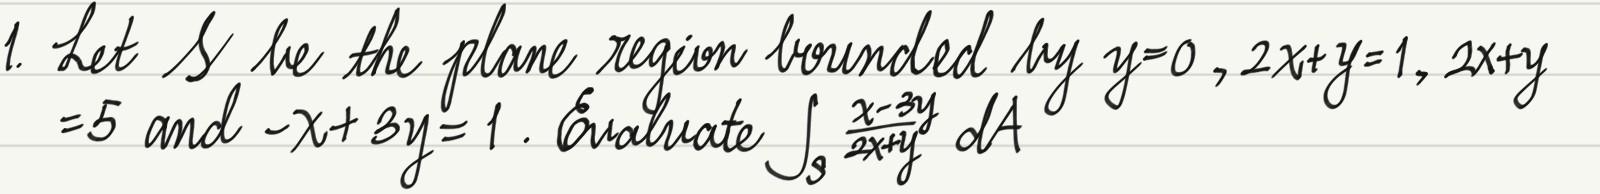 1. Let S be the plane region bounded by y=0, 2x+y=1, 2x+y
=5 and -x+3y=1. Evaluate ∫_S (x-3y)/(2x+y) dA